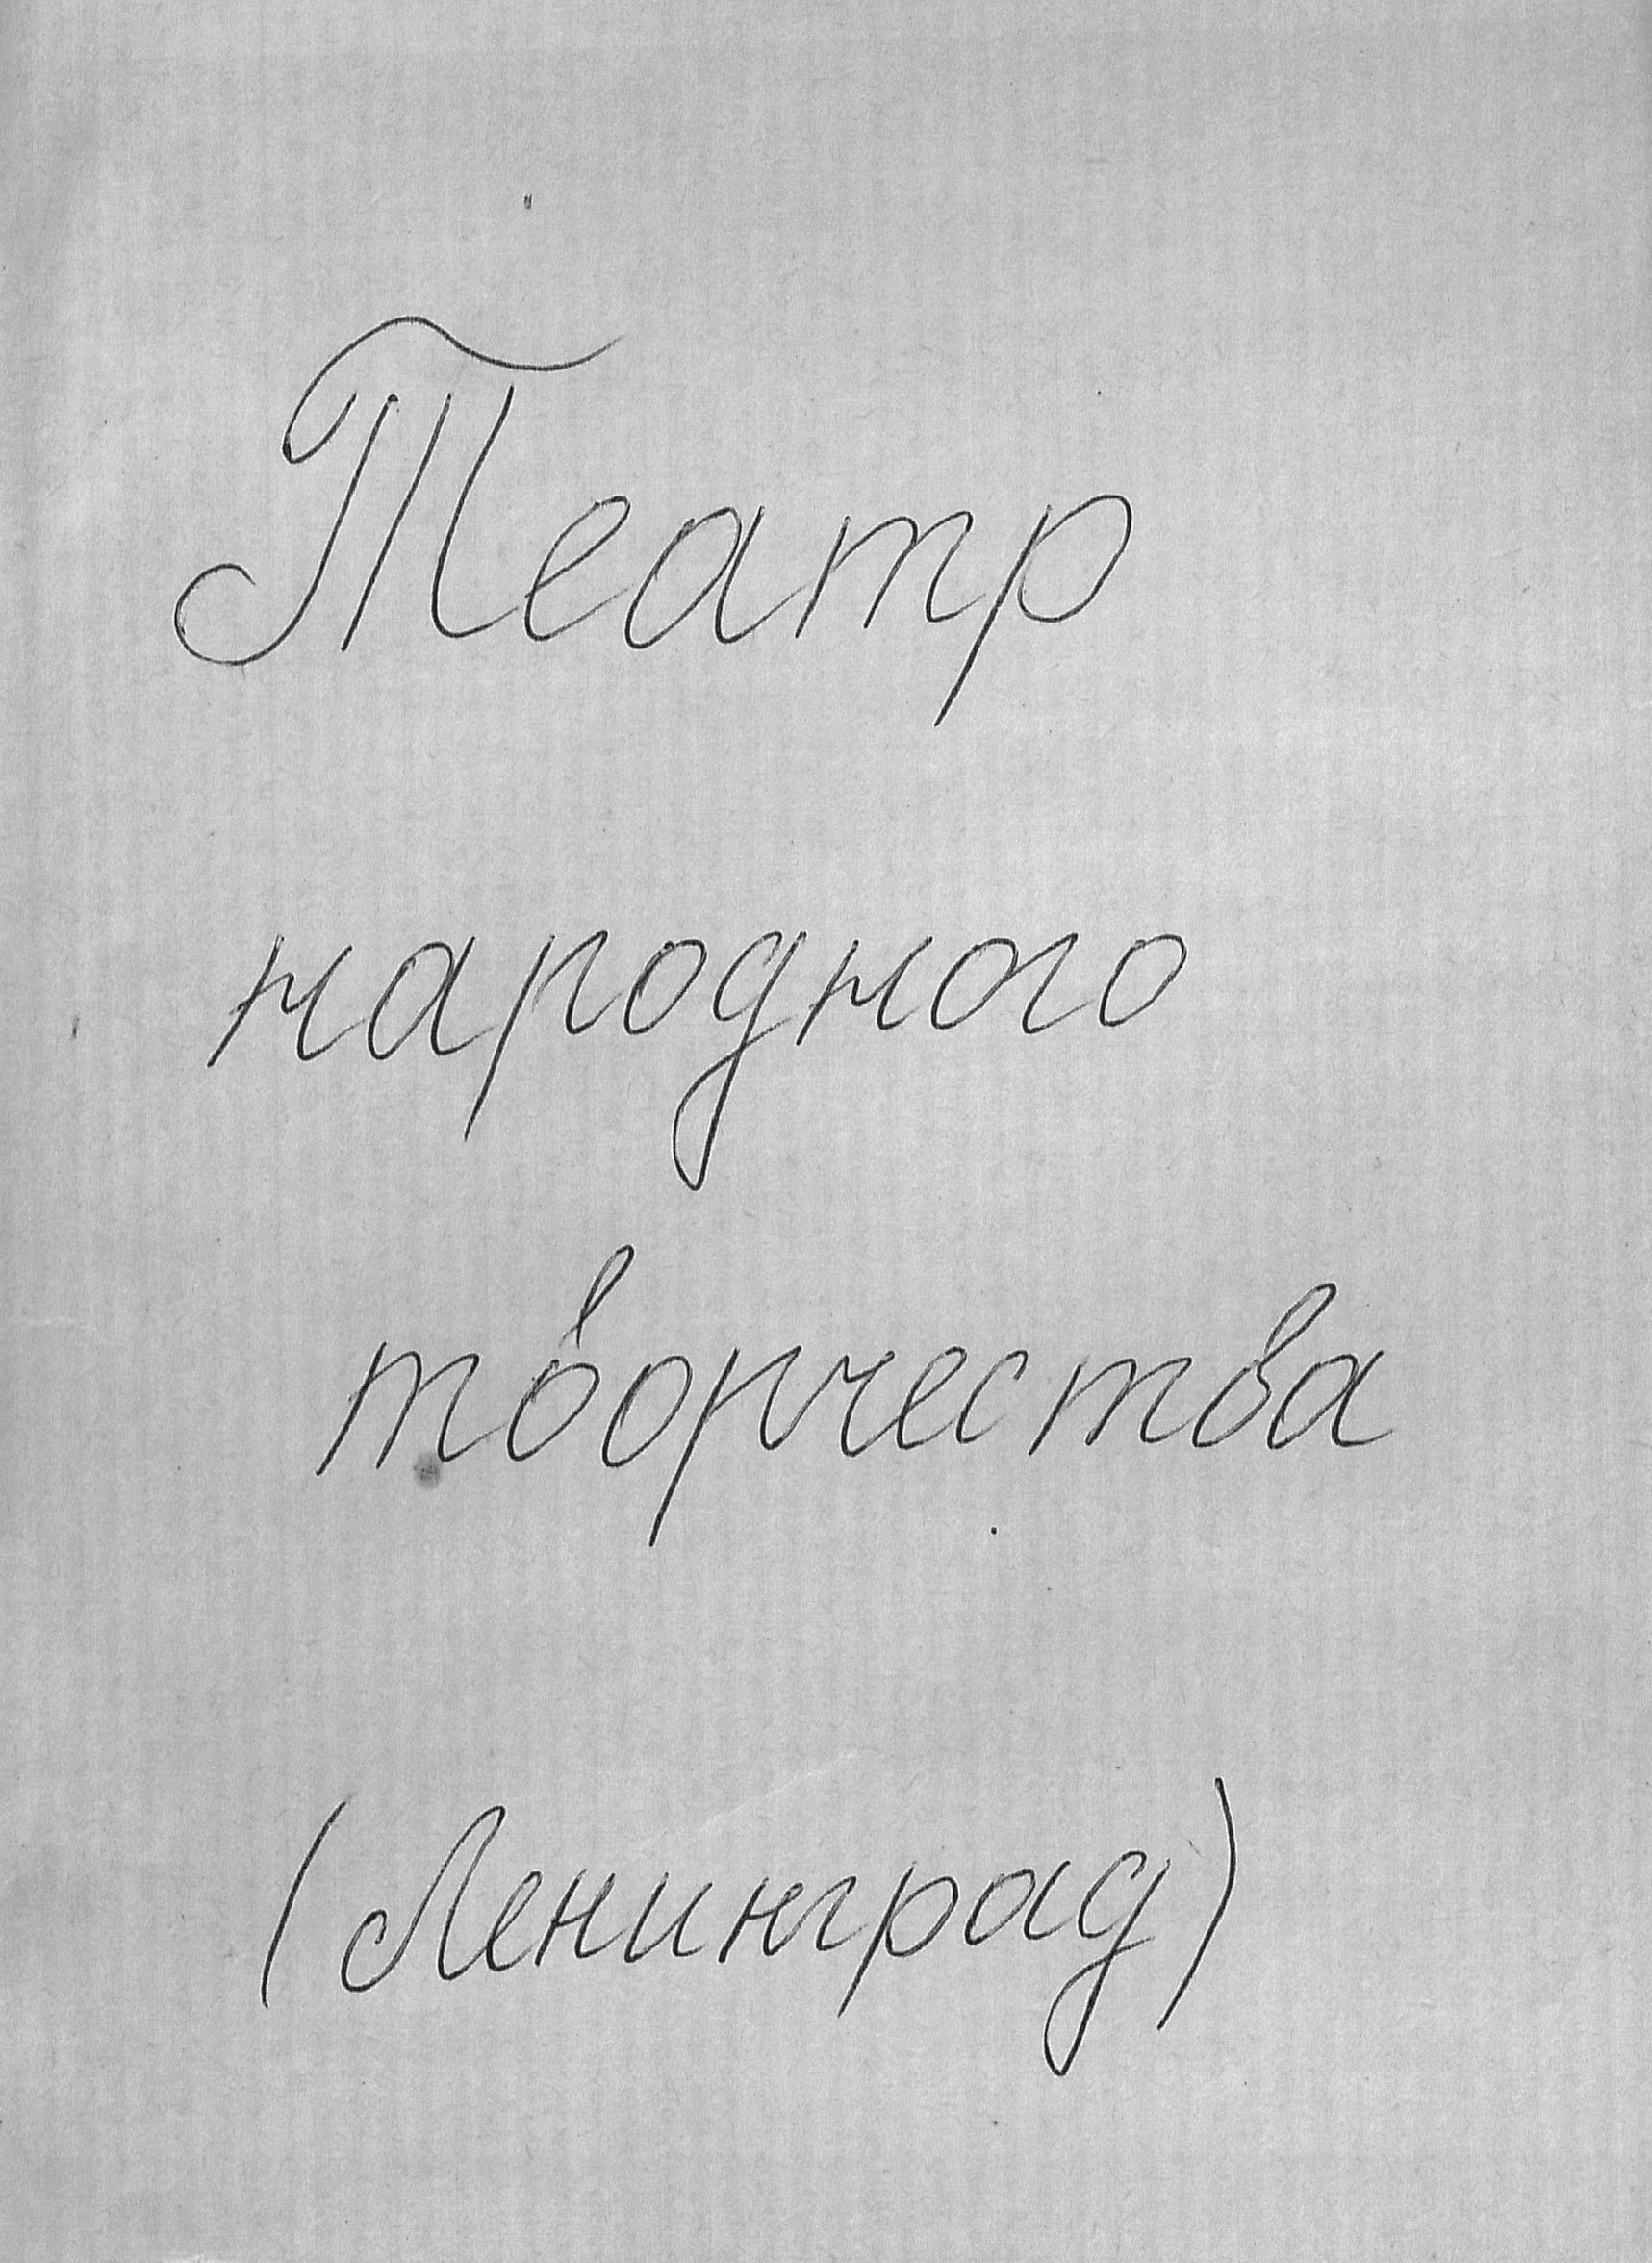 Театр
народного
творчества
(Ленинград)